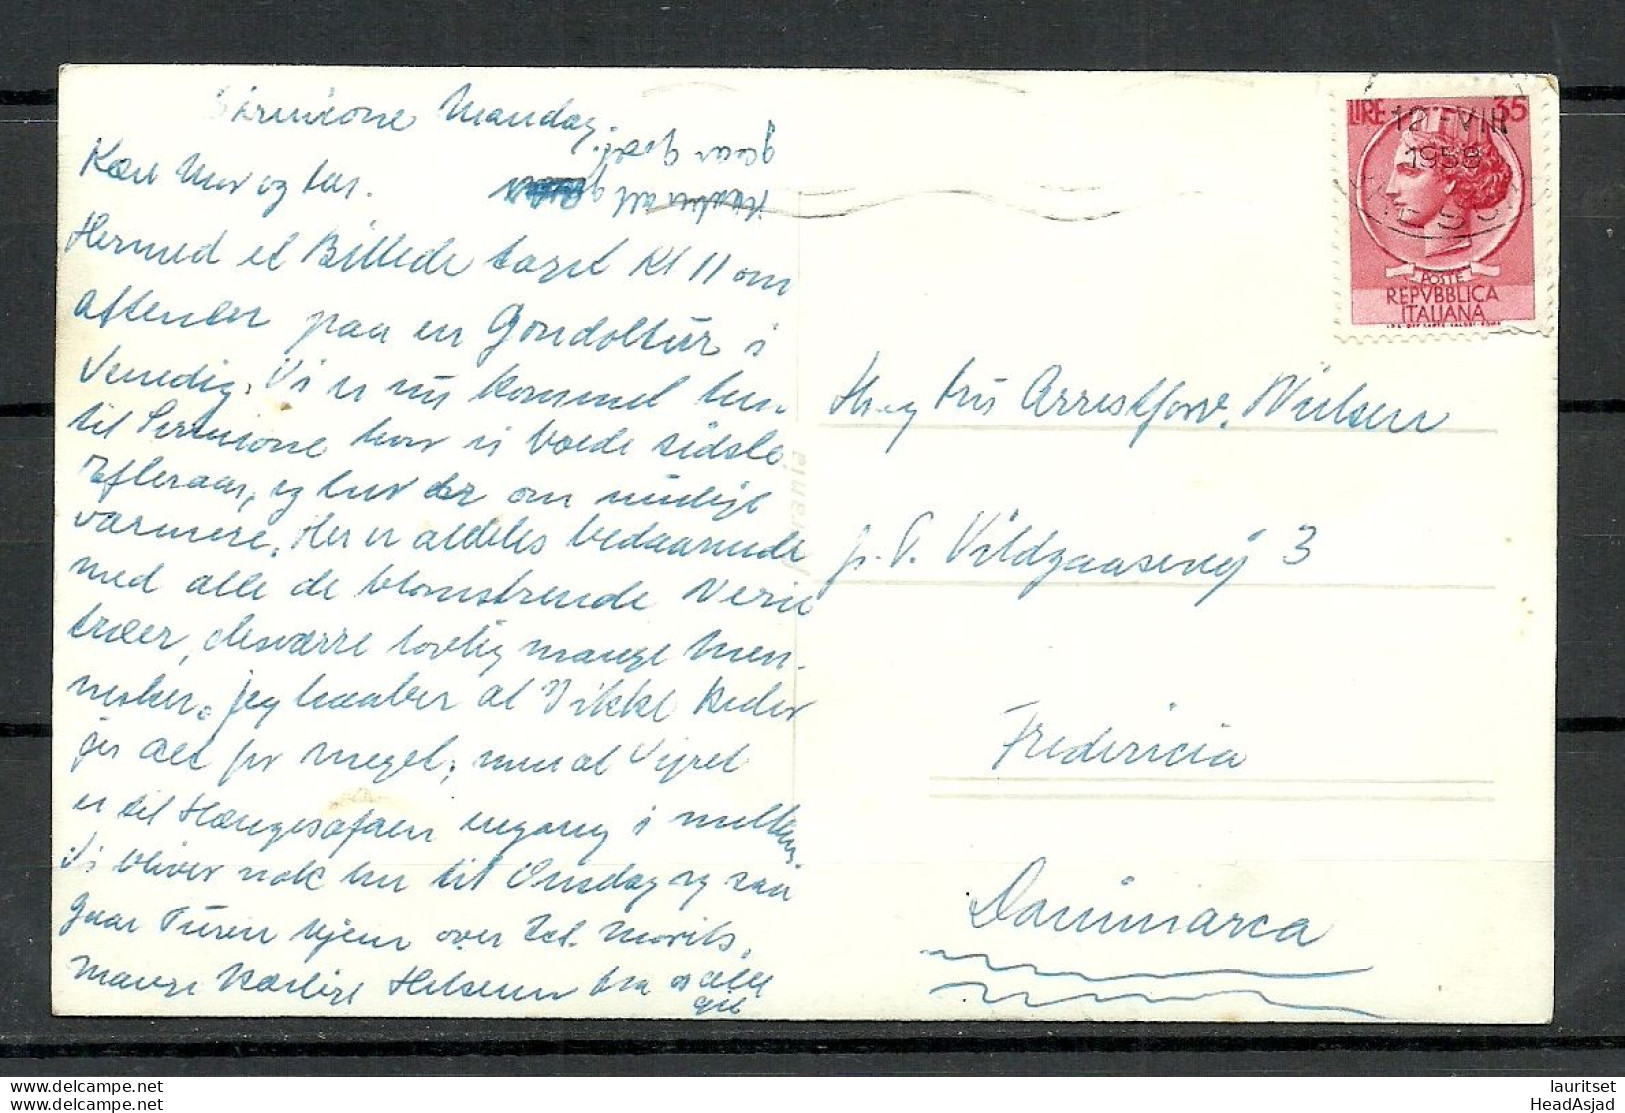 Sirmione Mandag.
Kære Mor og Far.
Hermed et Billede taget Kl 11 om
aftenen paa en Gondoltur i
Venedig. Vi er nu kommet hen
til Sirmione hvor vi boede sidste
Efteraar, og her er om muligt
varmere. Her er aldeles bedaarende
med alle de blomstrende Nerie
træer, desværre tovlig mange Men-
nesker. Jeg haaber at I ikke keder
jer alt for meget, men at Vejret
er til Hængesofaen engang i mellem.
Vi bliver nok her til Onsdag og saa
gaar Turen hjem over St. Moritz.
Mange kærlige Hilsener fra os alle
gaar godt.
Hr. og Fru Arrestforv. Nielsen
Vildgaasevej 3
Fredericia
Danimarca
LIRE 35
POSTE
REPVBBLICA
ITALIANA
1958
lauritset
HeadAsjad
lauritset@hot.ee
lauritset@hot.ee